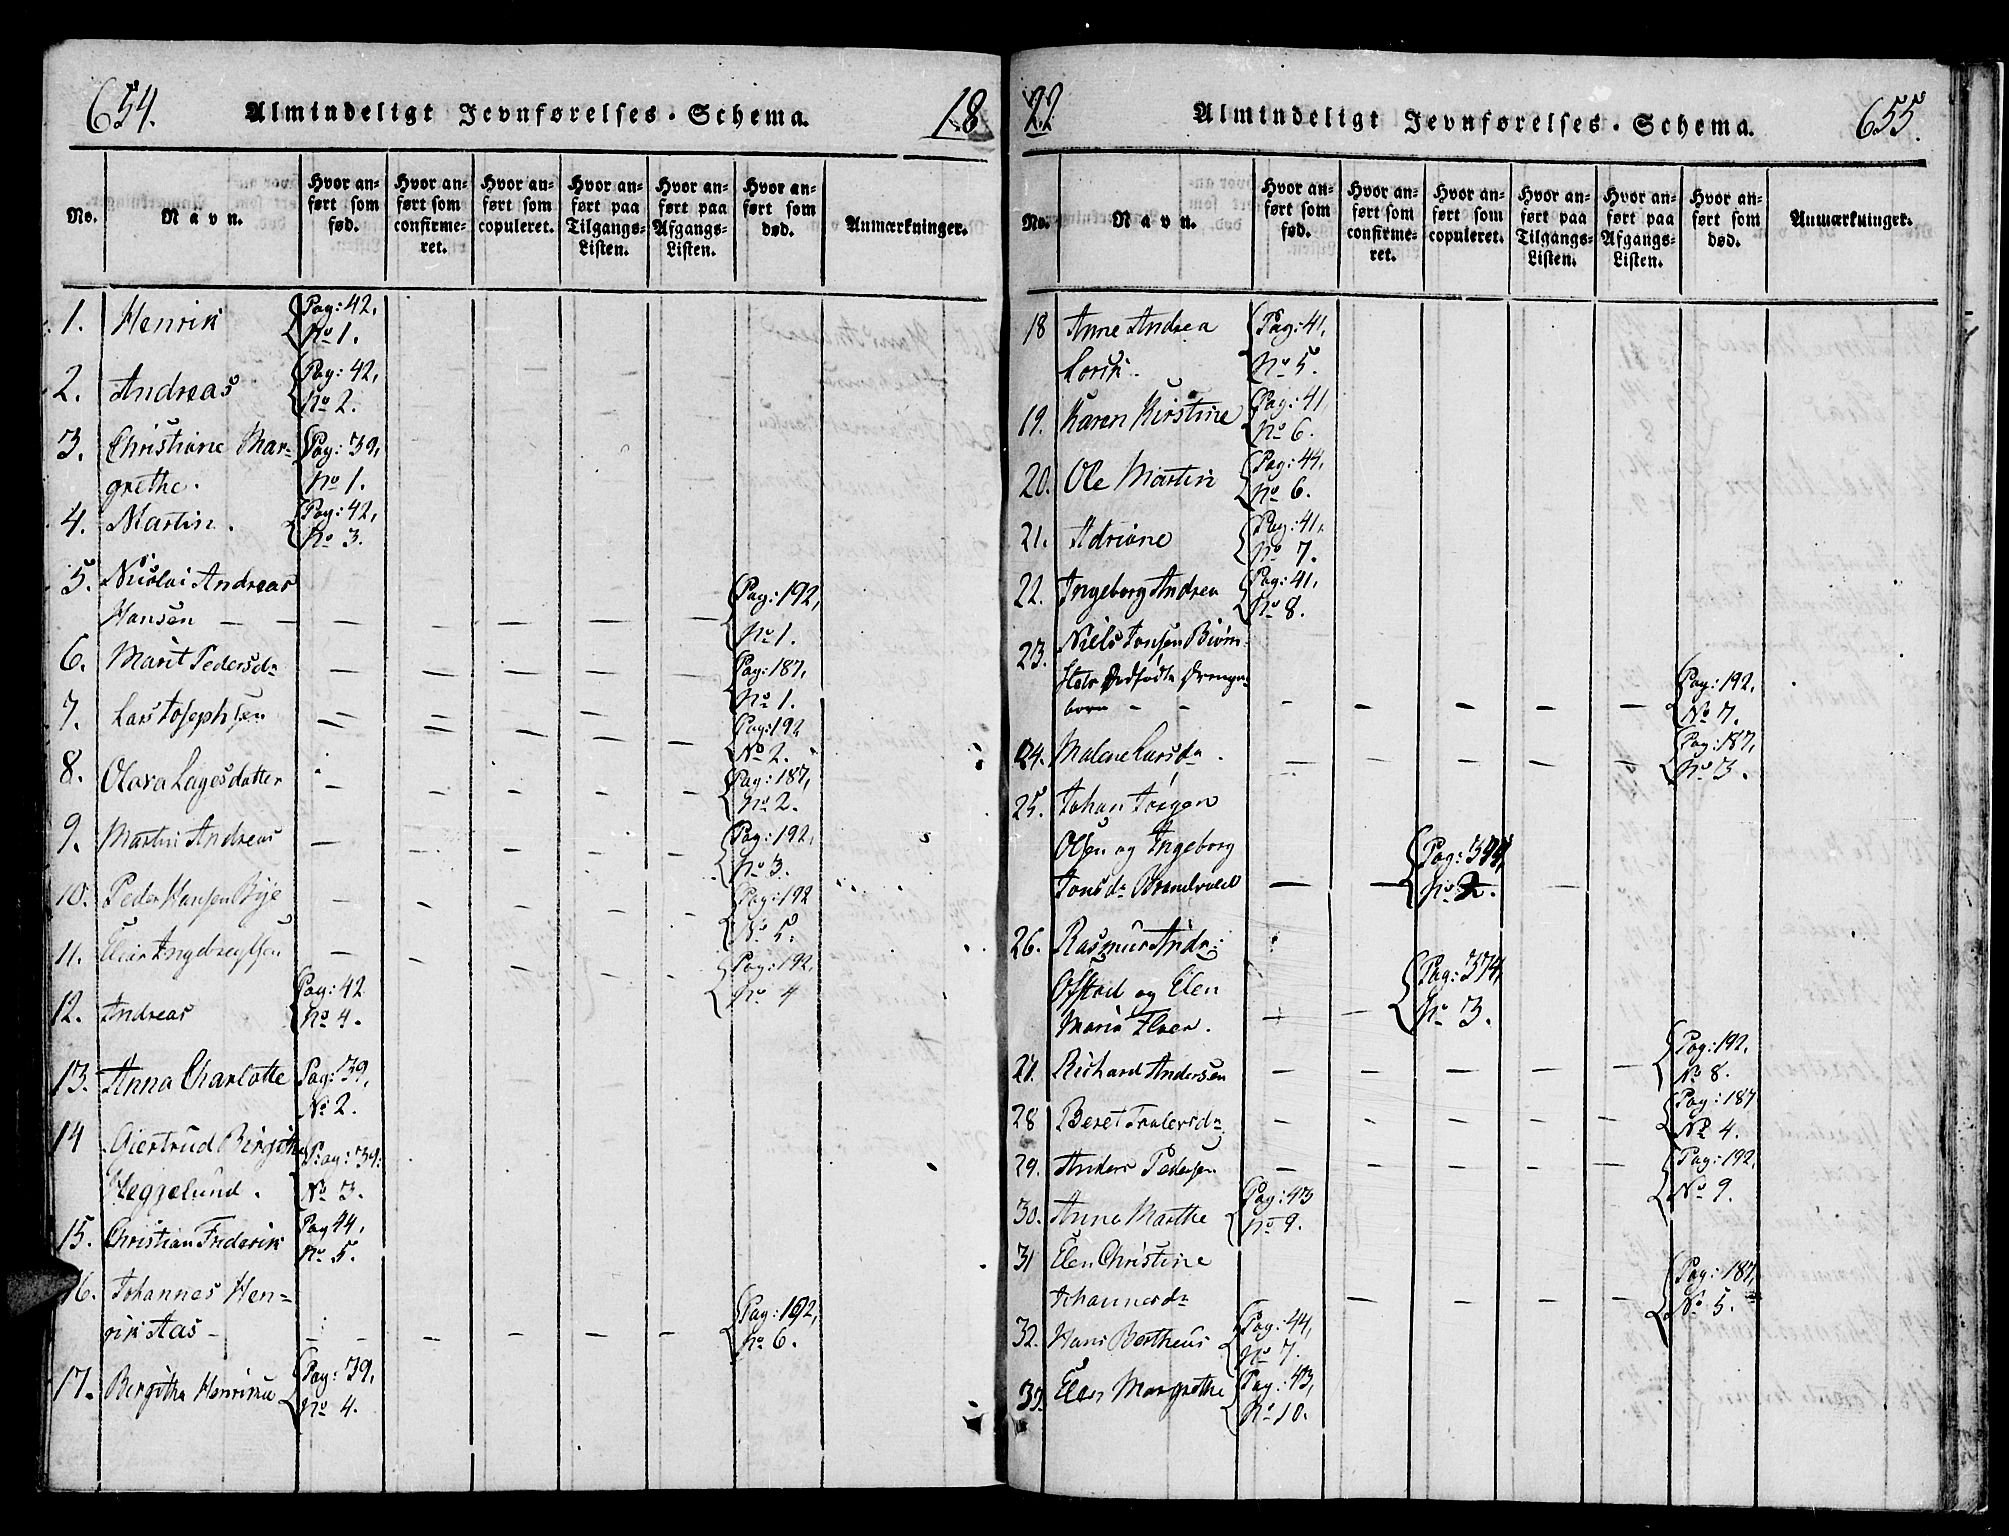 654. Almindeligt Jevnførelses-Schema. 18
No. Navn. Hvor anført som fød. Hvor anført som confirmeret. Hvor anført som copuleret. Hvor anført paa Tilgangs-Listen. Hvor anført paa Afgangs-Listen. Hvor anført som død. Anmærkninger.
1. Henrik Pag: 42,
No 1.
2. Andreas Pag: 42,
No 2.
3. Christiane Mar- Pag: 39,
grethe. No 1.
4. Martin. Pag: 42,
No 3.
5. Nicolai Andreas Pag: 192,
Hansen No 1.
6. Marit Pedersdr Pag: 187,
No 1.
7. Lars Josephsen Pag: 192
No 2.
8. Olava Lagesdatter Pag: 187,
No 2.
9. Martin Andreas Pag: 192,
No 3.
10. Peder Hansen Bye Pag: 192
No 5.
11. Ingebregtsen Pag: 192,
No 4
12. Andreas Pag: 42
No 4.
13. Anna Charlotte Pag: 39,
No 2.
14 Giertrud Birgithe Pag: 39.
Heggelund. No 3.
15. Christian Frederik Pag 44,
No 5.
16. Johannes Hen- Pag: 192,
rik Aas No 6.
17. Bergitha Henrikke Pag: 39,
No 4.
22 Almindeligt Jevnførelses-Schema. 655.
No. Navn. Hvor anført som fød. Hvor anført som confirmeret. Hvor anført som copuleret. Hvor anført paa Tilgangs-Listen. Hvor anført paa Afgangs-Listen. Hvor anført som død. Anmærkninger.
18 Anne Andrea Pag: 41,
No 5.
19. Karen Kirstine Pag: 41,
No 6.
20. Ole Martin Pag: 44,
No 6.
21. Adriane Pag: 41,
No 7.
22. Ingeborg Andrea Pag: 41,
No 8.
23. Niels Jonsen Biørn-
Dødfødte Drenge- Pag: 192,
barn No 7.
24. Malene Larsdr Pag: 187,
No 3.
25. Johan Jørgen
Olsen og Ingeborg Pag: 374,
Jonsdr No 2.
26. Rasmus Andr:
Ofstad og Elen Pag: 374,
Maria No 3.
27. Richard Andersen Pag: 192,
No 8.
28 Beret Pag: 187
No 4.
29. Anders Pedersen Pag: 192,
No 9.
30. Anna Marthe Pag: 43
No 9.
31 Elen Christine Pag: 187,
Johannesdr No 5.
32. Hans Bertheus Pag: 44,
No 7.
33. Elen Margrethe Pag: 43,
No 10.